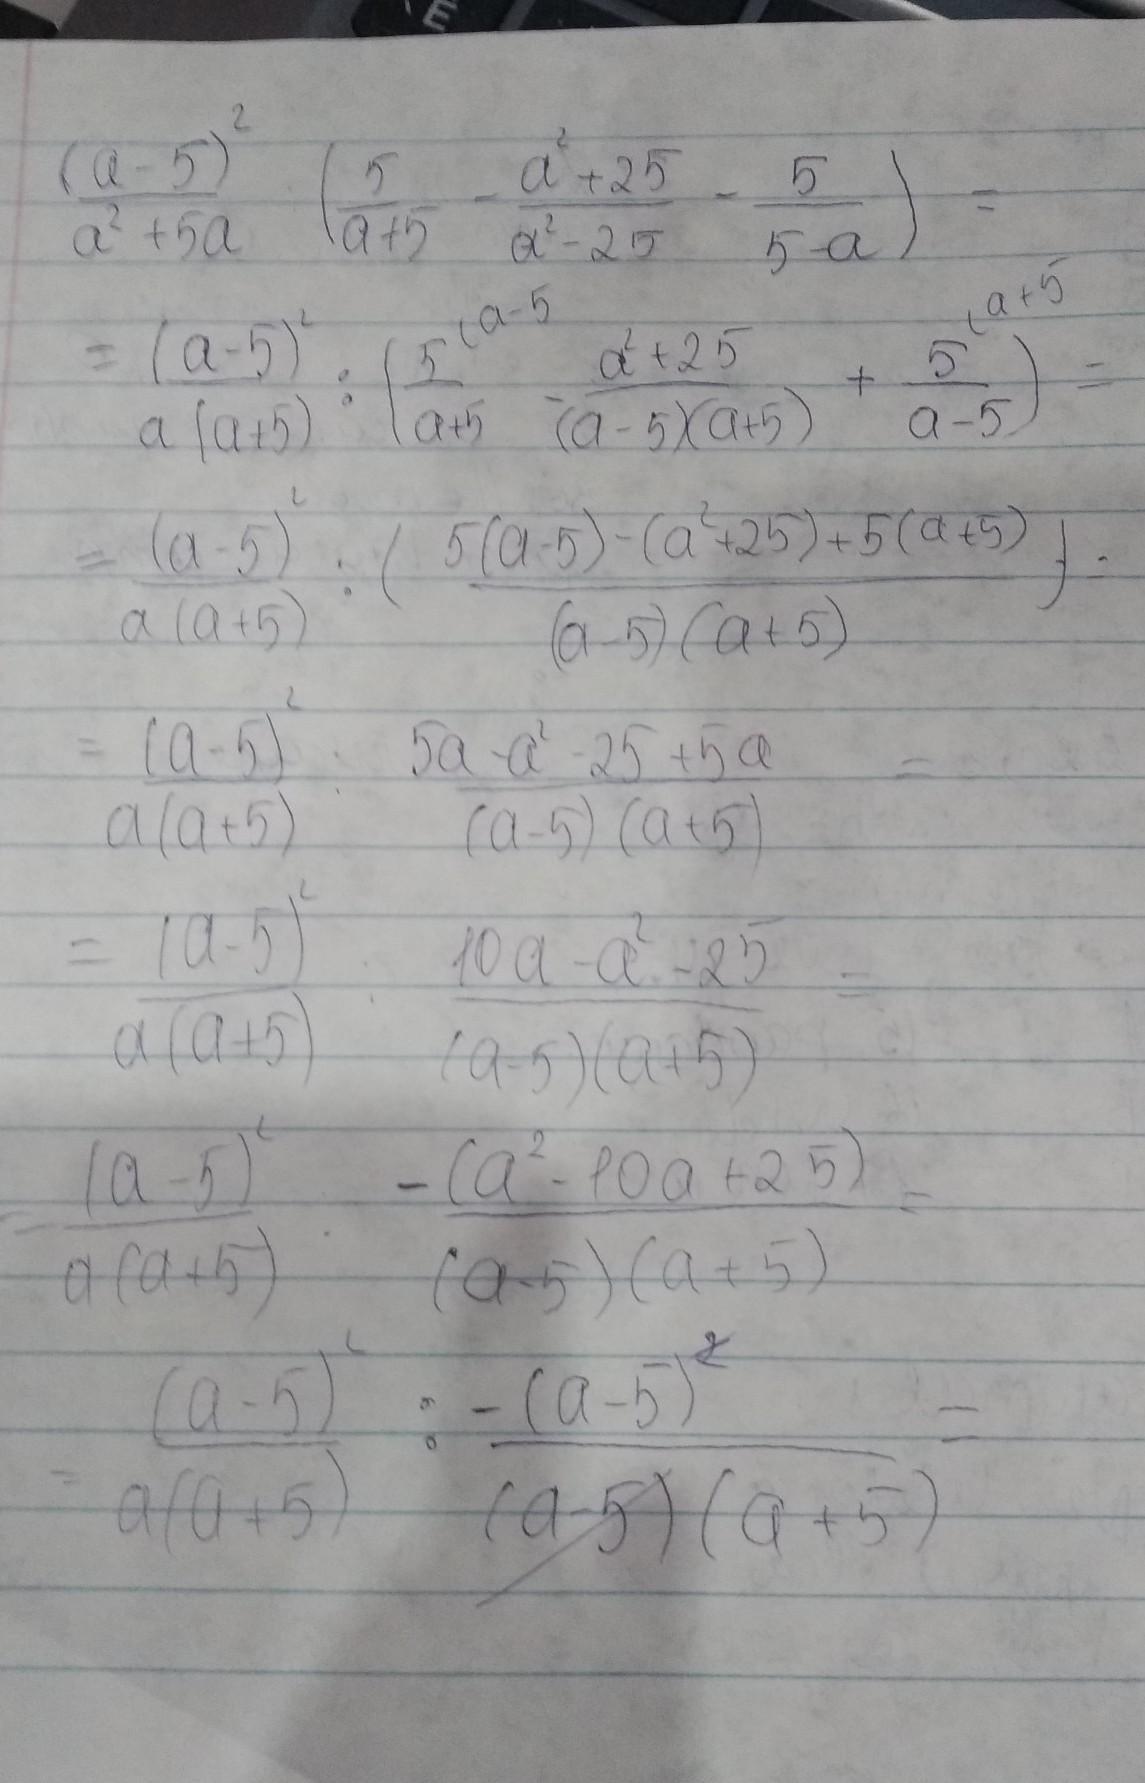 (a-5)² / a²+5a (5 / a+5 - a²+25 / a²-25 - 5 / 5-a) =
= (a-5)² / a(a+5) : (5 (a-5 / a+5 - a²+25 / (a-5)(a+5) + 5 (a+5 / a-5) =
= (a-5)² / a(a+5) : ( 5(a-5)-(a²+25)+5(a+5) / (a-5)(a+5) ) =
= (a-5)² / a(a+5) : 5a-a²-25+5a / (a-5)(a+5) =
= (a-5)² / a(a+5) : 10a-a²-25 / (a-5)(a+5) =
= (a-5)² / a(a+5) : -(a²-10a+25) / (a-5)(a+5) =
= (a-5)² / a(a+5) : -(a-5)² / (a-5)(a+5) =